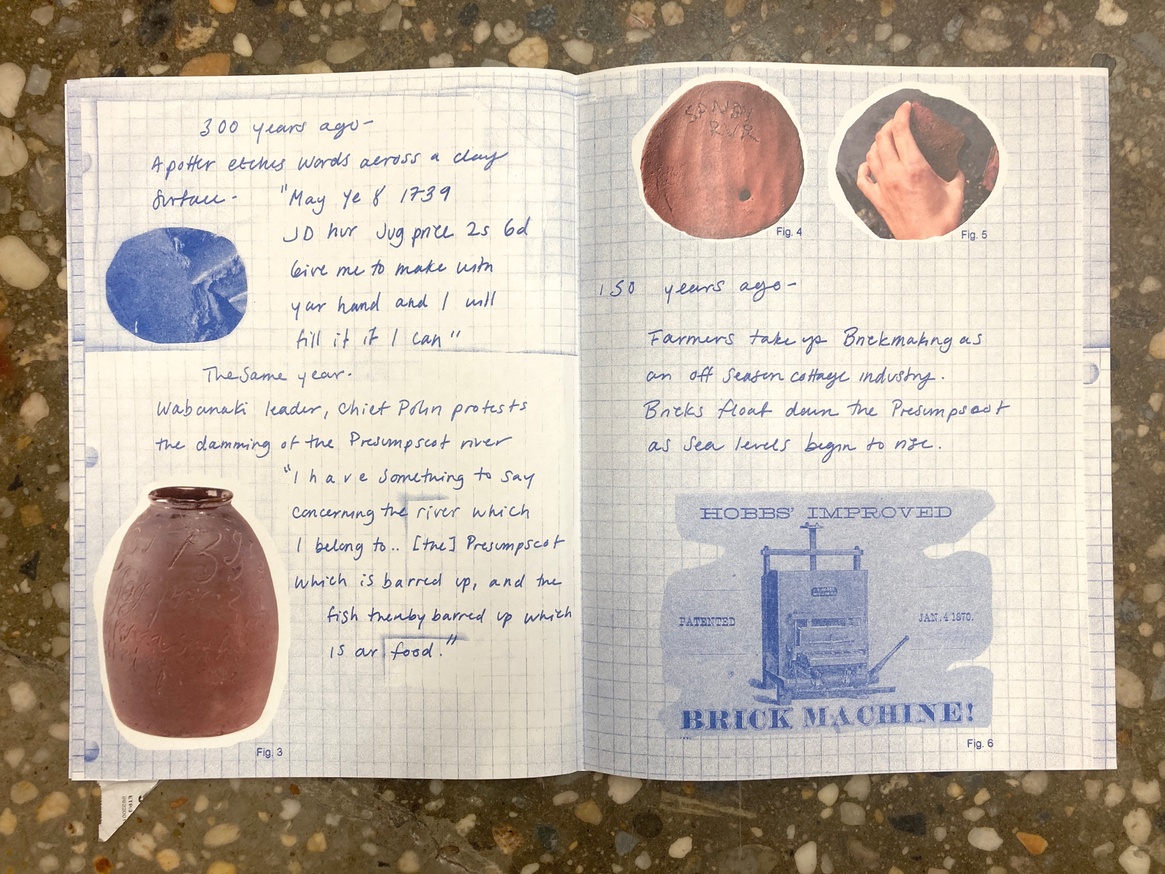 300 years ago-
A potter etches words across a clay
surface. "May Ye 8 1739
JD hur Jug price 2s 6d
Give me to make with
yar hand and I will
fill it if I can"
The same year.
Wabanaki leader, Chief Polin protests
the damming of the Presumpscot river
"I have something to say
concerning the river which
I belong to.. [the] Presumpscot
which is barred up, and the
fish thereby barred up which
is ar food."
Fig. 3
SANDY
RVR
Fig. 4
Fig. 5
150 years ago-
Farmers take up Brickmaking as
an off season cottage industry.
Bricks float down the Presumpscot
as sea levels begin to rise.
HOBBS' IMPROVED
PATENTED JAN. 4 1870.
BRICK MACHINE!
Fig. 6